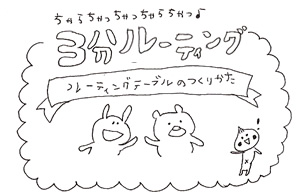 ちゃらちゃっちゃっちゃらちゃっ♪
3分ルーティング
ルーティングテーブルのつくりかた
!